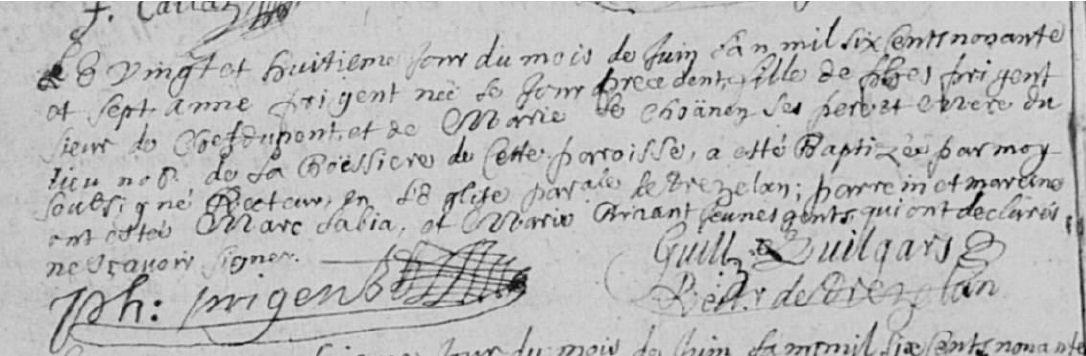 f. Callar
Le Vingt et huitieme Jour du mois de Juin L'an mil six cents nonante
et sept anne prigent née le Jour precedent, fille de phes prigent
sieur de Coefdupont, et de Marie le Choänen ses pere et Mere du
lieu no. de La Boëssiere de Cette parroisse, a etté Baptizèe par moy
soubsigné Recteur, en L'Eglise par.ale de Trezelan; parrein et mareine
ont estés Marc Labia, et Marie Arnant Jeunes gents, qui ont declarés
ne sçavoir signer.
Guill. Quilgars
Ph: prigent
Rect.r de Trezelan
Jour du mois de Juin L'an mil six Cents nonante